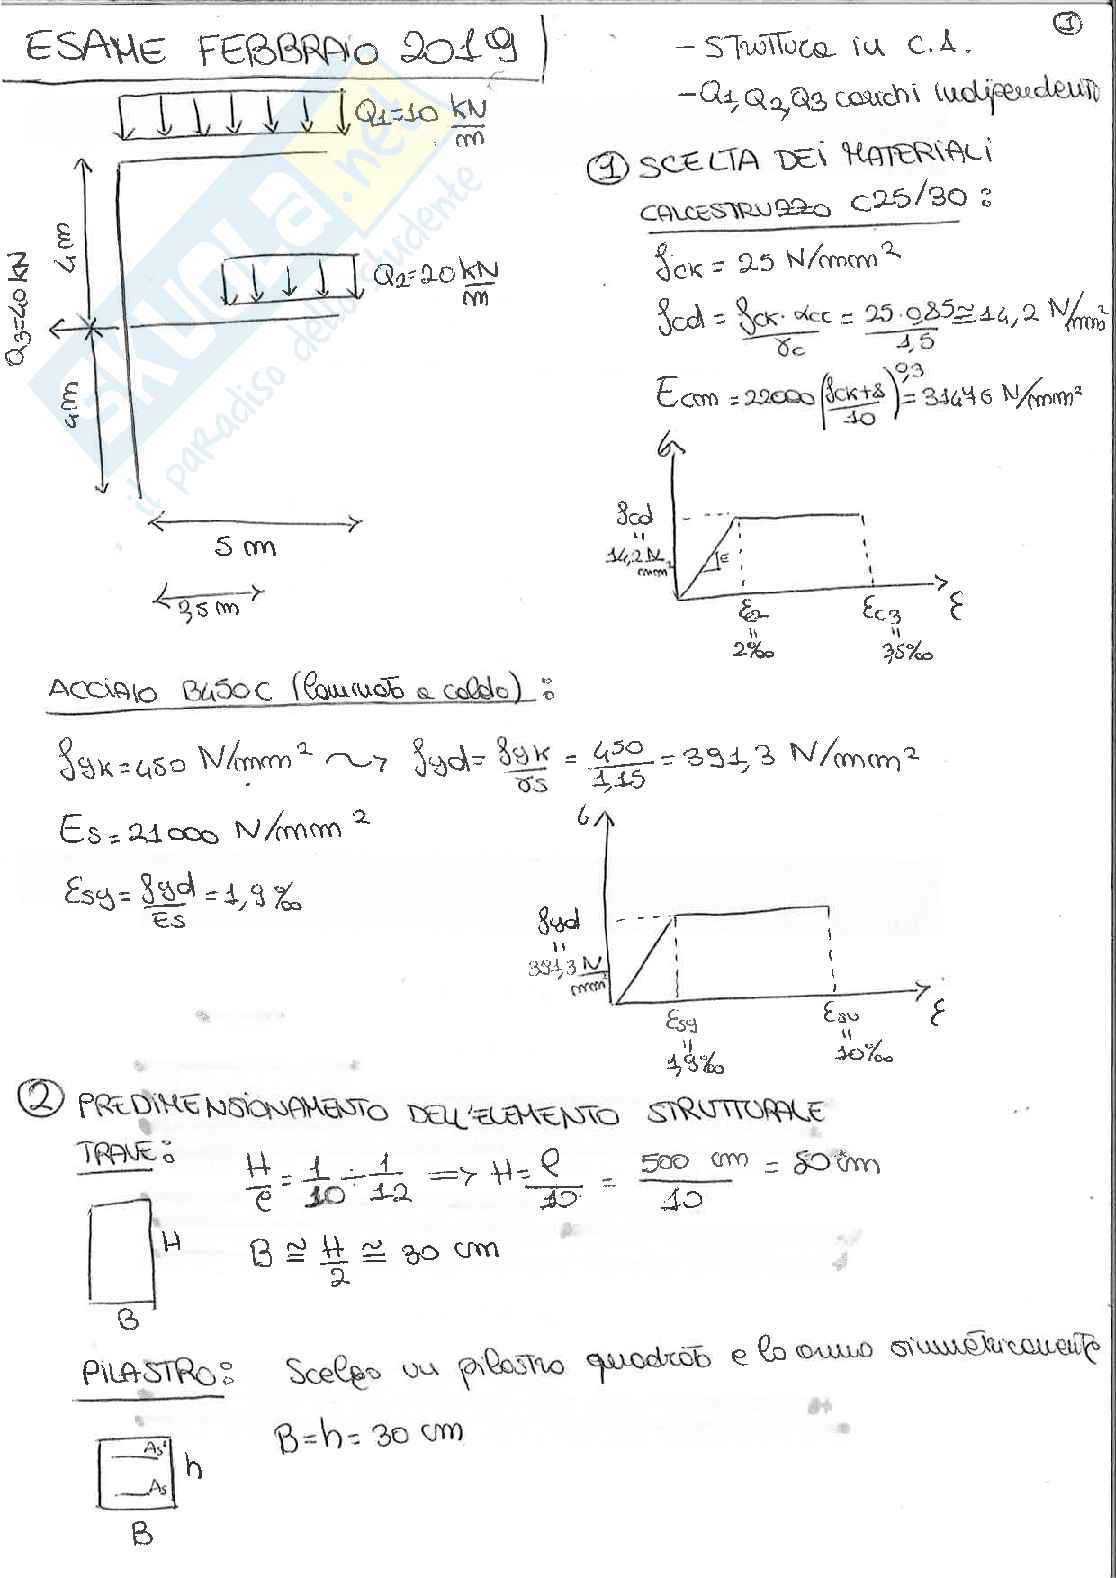 1
ESAME FEBBRAIO 2019
- Struttura in C.A.
- Q1, Q2, Q3 carichi indipendenti
Q1=10 kN/m
4m
Q2=20 kN/m
Q3=40 KN
4m
5 m
3,5 m
SKUOLA.net
il paradiso dello studente
① SCELTA DEI MATERIALI
CALCESTRUZZO C25/30:
fck = 25 N/mm²
fcd = fck · αcc / γc = 25 · 0,85 / 1,5 ≅ 14,2 N/mm²
Ecm = 22000 (fck+8 / 10)^0,3 = 31476 N/mm²
σ
fcd = 14,2 N/mm²
E
Ec2 = 2‰
εc3 = 3,5‰
ε
ACCIAIO B450C (laminato a caldo):
fyk = 450 N/mm² ~> fyd = fyk / γs = 450 / 1,15 = 391,3 N/mm²
Es = 21000 N/mm²
Esy = fyd / Es = 1,9‰
σ
fyd = 391,3 N/mm²
Esy = 1,9‰
Esu = 10‰
ε
② PREDIMENSIONAMENTO DELL'ELEMENTO STRUTTURALE
TRAVE:
H/l = 1/10 ÷ 1/12 => H = l/10 = 500 cm / 10 = 50 cm
H
B
B ≅ H/2 ≅ 30 cm
PILASTRO: Scelgo un pilastro quadrato e lo armo simmetricamente
As'
As
h
B
B=h= 30 cm